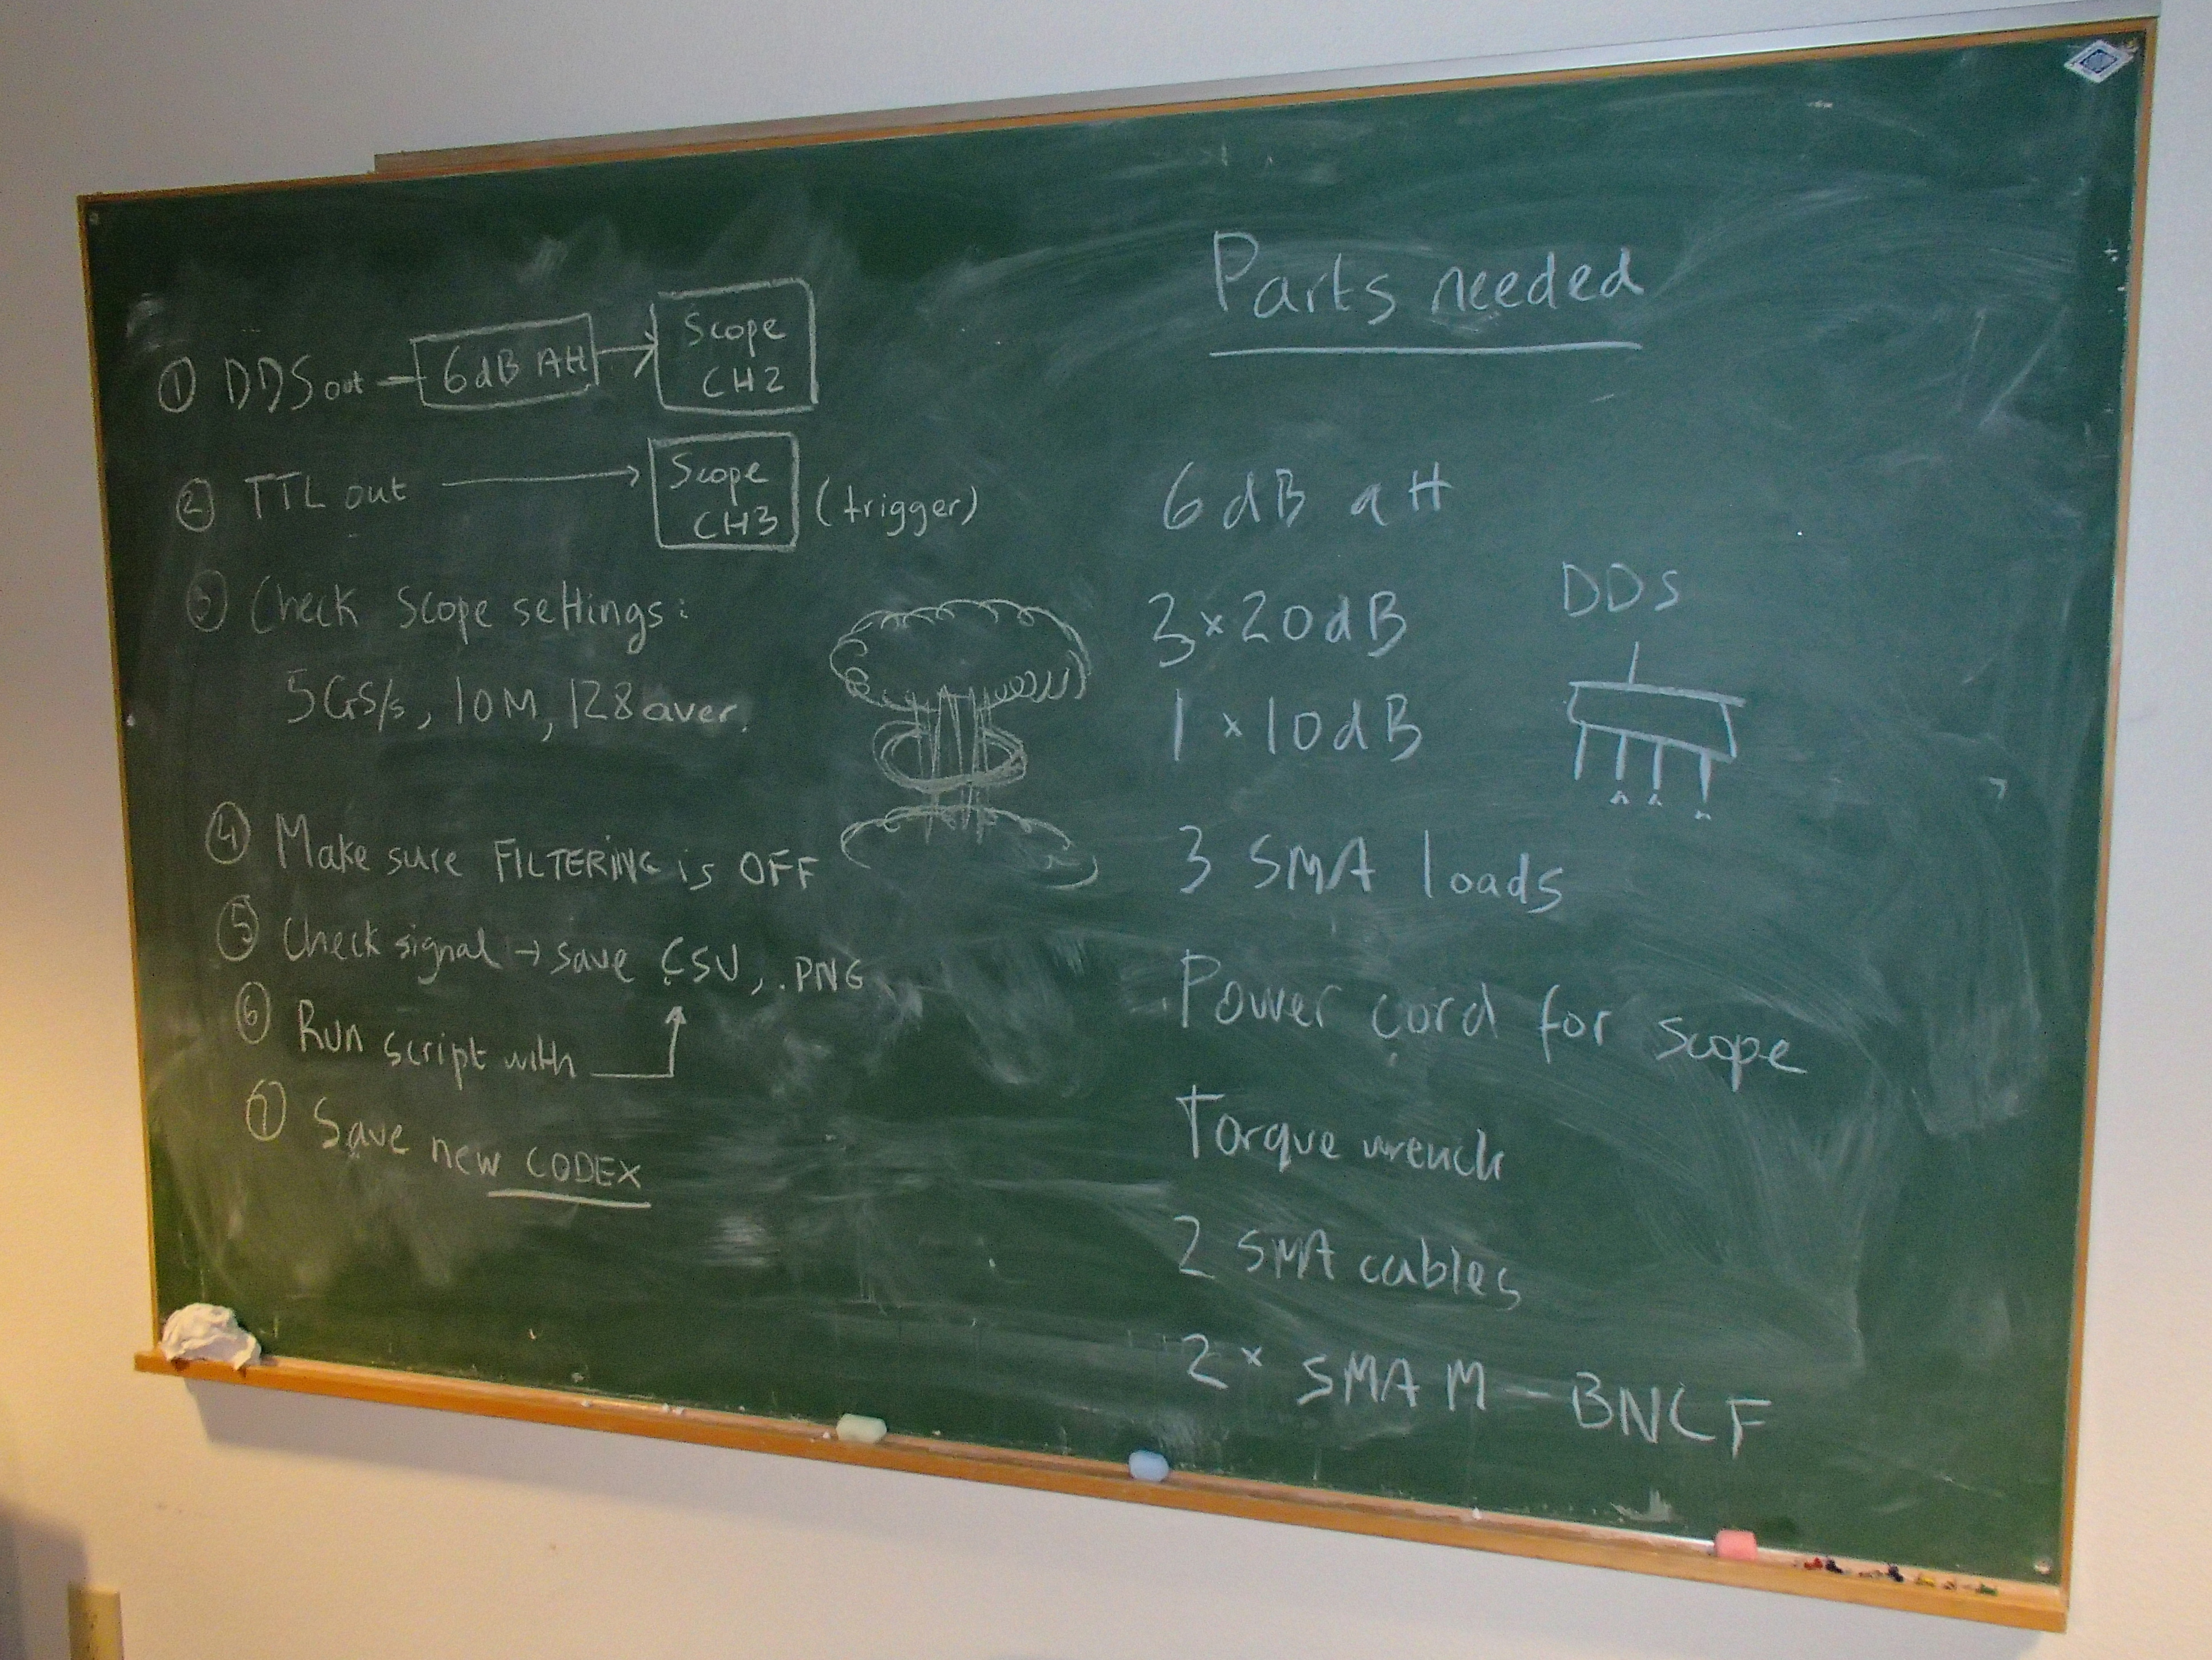 ① DDS out
6dB Att
Scope
CH2
② TTL out
Scope
CH3
(trigger)
③ Check Scope settings:
5GS/s, 10M, 128 aver.
④ Make sure FILTERING is OFF
⑤ Check signal → save CSV, .PNG
⑥ Run script with
⑦ Save new CODEX
Parts needed
6 dB att
3 × 20 dB
1 × 10 dB
DDS
3 SMA loads
Power cord for scope
Torque wrench
2 SMA cables
2 × SMA M - BNC F